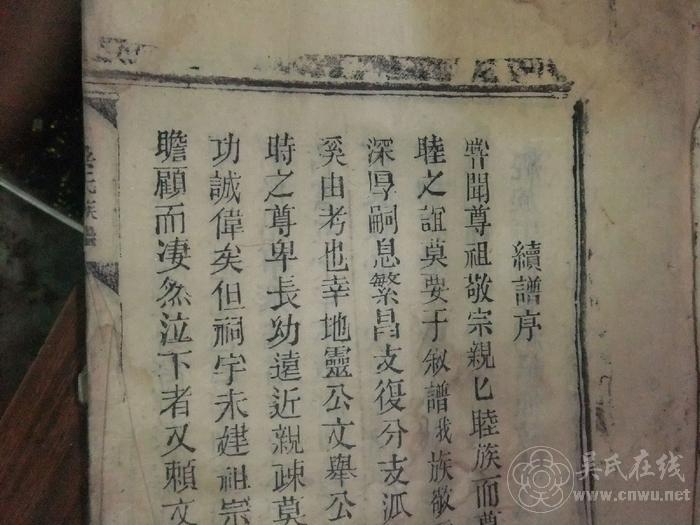 續譜序
嘗聞尊祖敬宗親匕睦族而尊
睦之誼莫要于敘譜我族敬
深厚嗣息繁昌支復分支派
奚由考也幸地靈公文舉公
時之尊卑長幼遠近親疎莫
功誠偉矣但祠宇未建祖宗
瞻顧而凄然泣下者又頼文
氏族譜
吳氏在线
www.cnwu.net